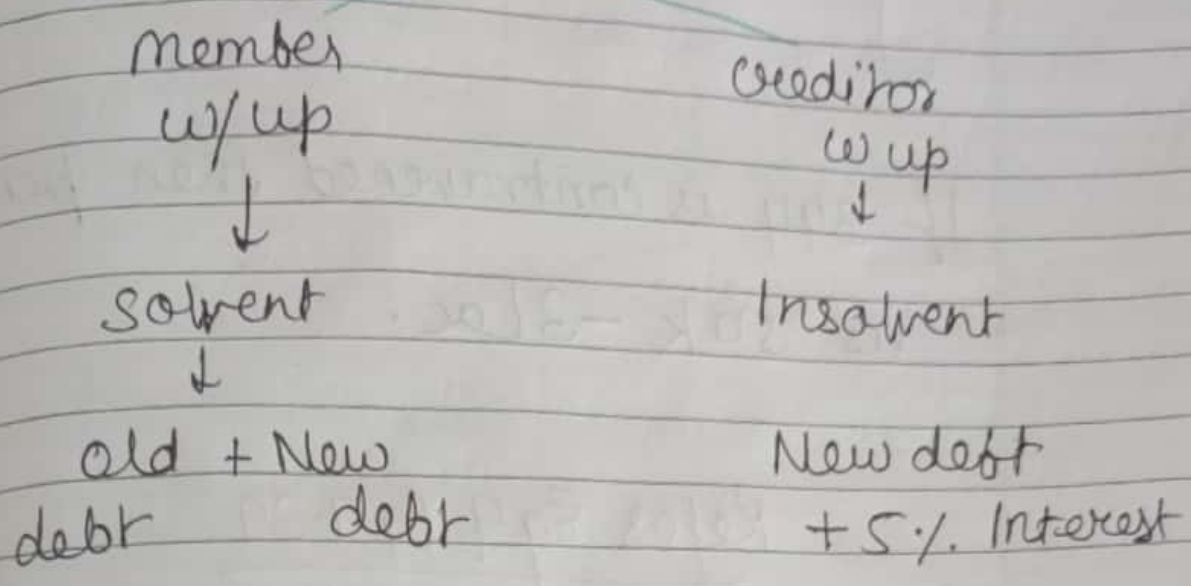 Member
w/up
↓
Solvent
↓
old + New
debt debt
Creditor
w up
↓
Insolvent
New debt
+ 5%. Interest